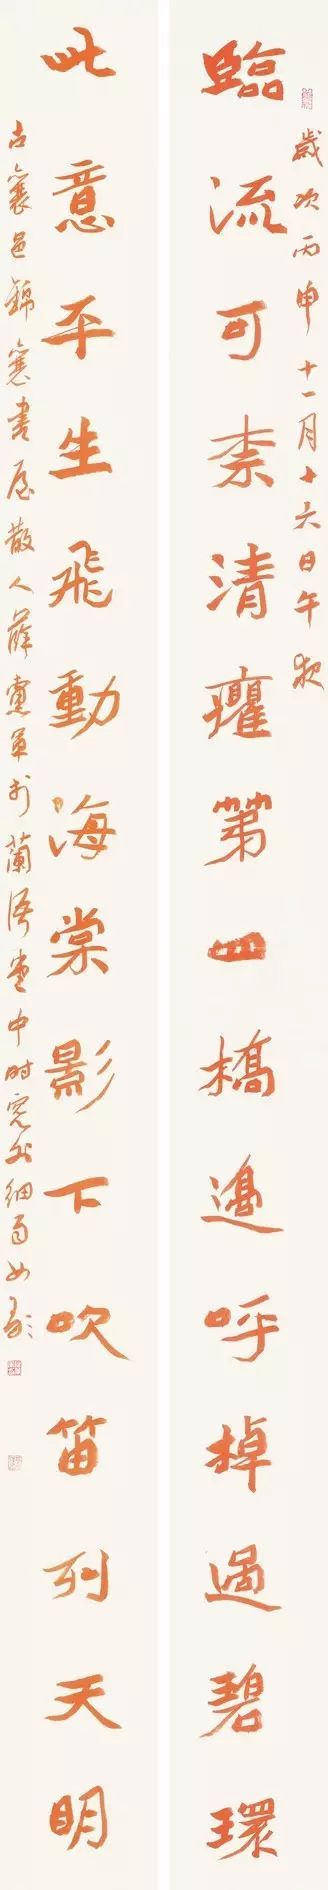 歲次丙申十一月十六日午夜
臨流可柰清癯第四橋邊呼棹過碧環
此意平生飛動海棠影下吹笛到天明
古襄邑錦襄書屋散人薛憲軍於蘭堂中時窗外細雨如